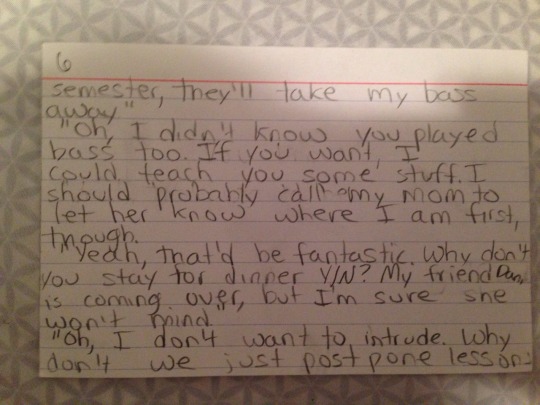 6
semester, they'll take my bass
away"
"Oh, I didn't know you played
bass too. If you want, I
could teach you some stuff. I
should probably call my mom to
let her know where I am first,
though.
"Yeah, that'd be fantastic. Why don't
you stay for dinner Y/N? My friend Dani
is coming over, but I'm sure she
won't mind"
"Oh, I don't want to intrude. Why
don't we just postpone lessons